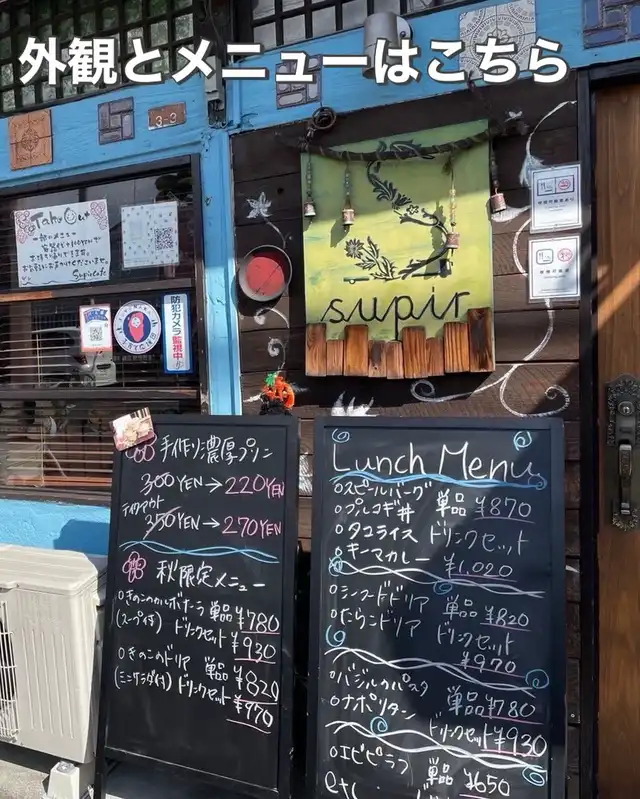 外観とメニューはこちら
3-3
Take Out
supir
防犯カメラ
監視中
手作り濃厚プリン
300YEN→220YEN
テイクアウト
350YEN→270YEN
秋限定メニュー
○きのこのカルボナーラ 単品¥780
(スープ付) ドリンクセット
¥930
○きのこのドリア 単品¥820
(ミニサラダ付) ドリンクセット
¥970
Lunch Menu
○スピールバーグ
○プルコギ丼 単品¥870
○タコライス ドリンクセット
○キーマカレー ¥1,020
○シーフードドリア 単品¥820
○たらこドリア ドリンクセット
¥970
○バジルのパスタ 単品¥780
○ナポリタン ドリンクセット
¥930
○エビピラフ 単品¥650
etc.